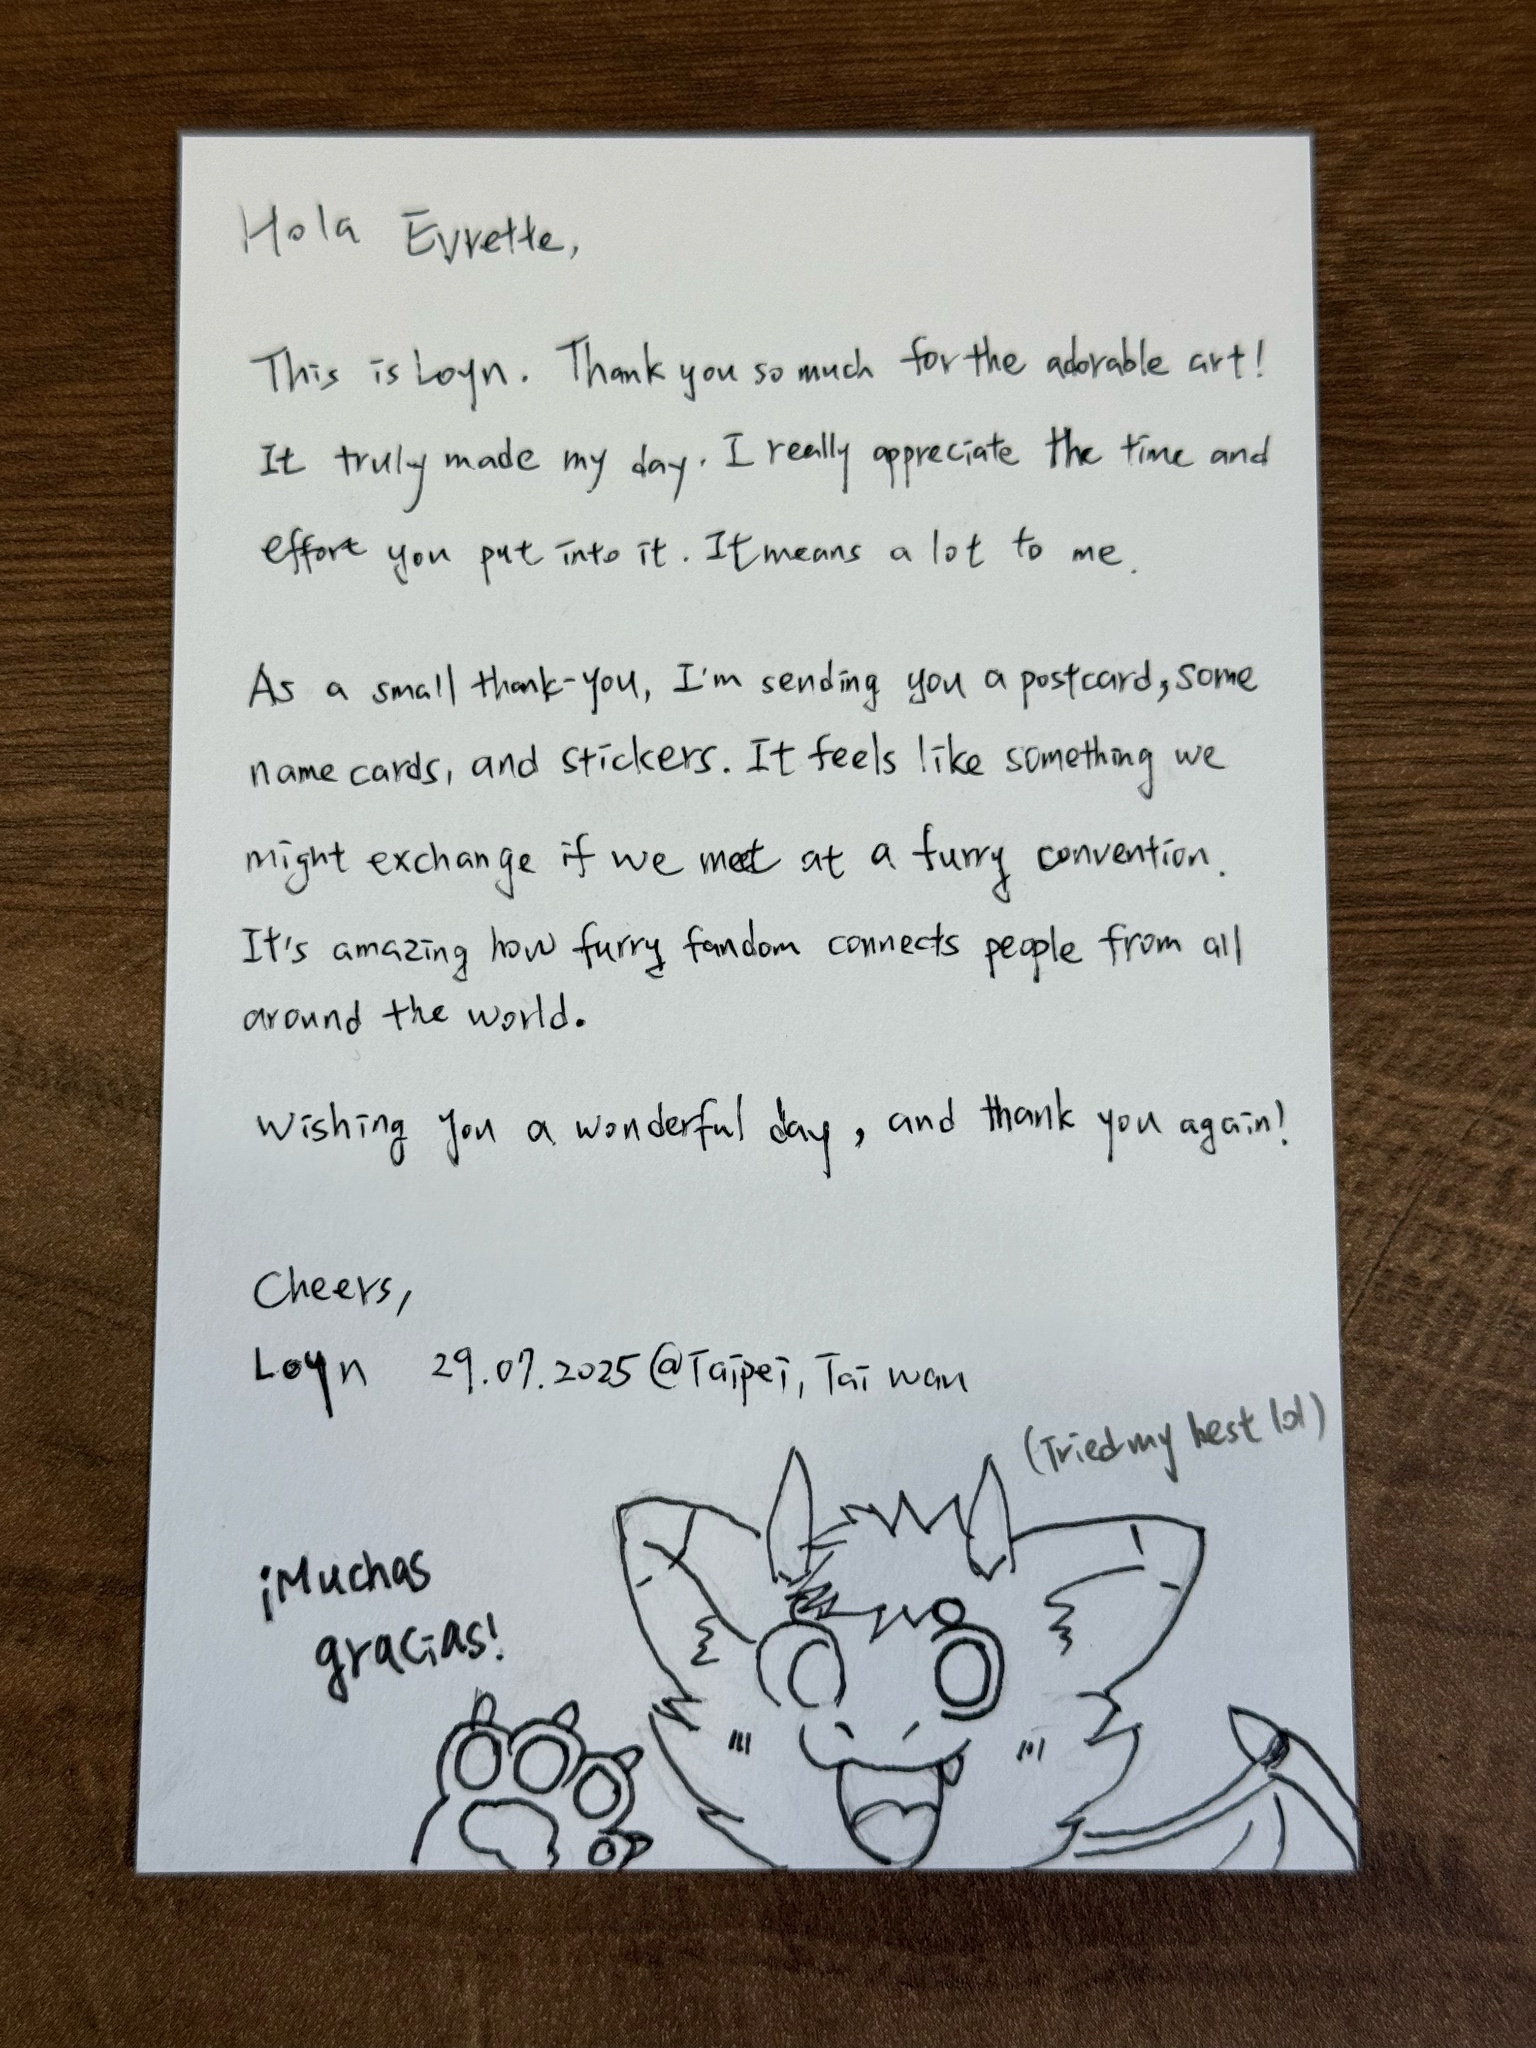 Hola Evrette,
This is Loyn. Thank you so much for the adorable art!
It truly made my day. I really appreciate the time and
effort you put into it. It means a lot to me.
As a small thank-you, I'm sending you a postcard, some
name cards, and stickers. It feels like something we
might exchange if we meet at a furry convention.
It's amazing how furry fandom connects people from all
around the world.
Wishing you a wonderful day, and thank you again!
Cheers,
Loyn 29.07.2025 @Taipei, Taiwan
(Tried my best lol)
¡Muchas
gracias!